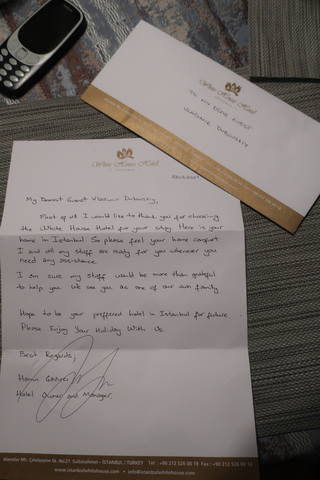 White House Hotel
ISTANBUL
TO MY DEAR GUEST
VLADIMIR DUBOVSKIY
White House Hotel
ISTANBUL
My Dearest Guest Vladimir Dubovskiy,
First of all I would like to thank you for choosing
the White House Hotel for your stay. Here is your
home in Istanbul. So please feel your home comfort.
I and all my staff are ready for you whenever you
need any assistance.
I am sure my staff would be more than grateful
to help you. We see you as one of our own family.
Hope to be your preferred hotel in Istanbul for future
Please Enjoy Your Holiday With Us.
Best Regards,
Hotel Owner and Manager.
Alemdar Mh. Çatalçeşme Sk. No:21 Sultanahmet - İSTANBUL / TURKEY Tel : +90 212 526 00 19 Fax : +90 212 526 09 14
www.istanbulwhitehouse.com • info@istanbulwhitehouse.com